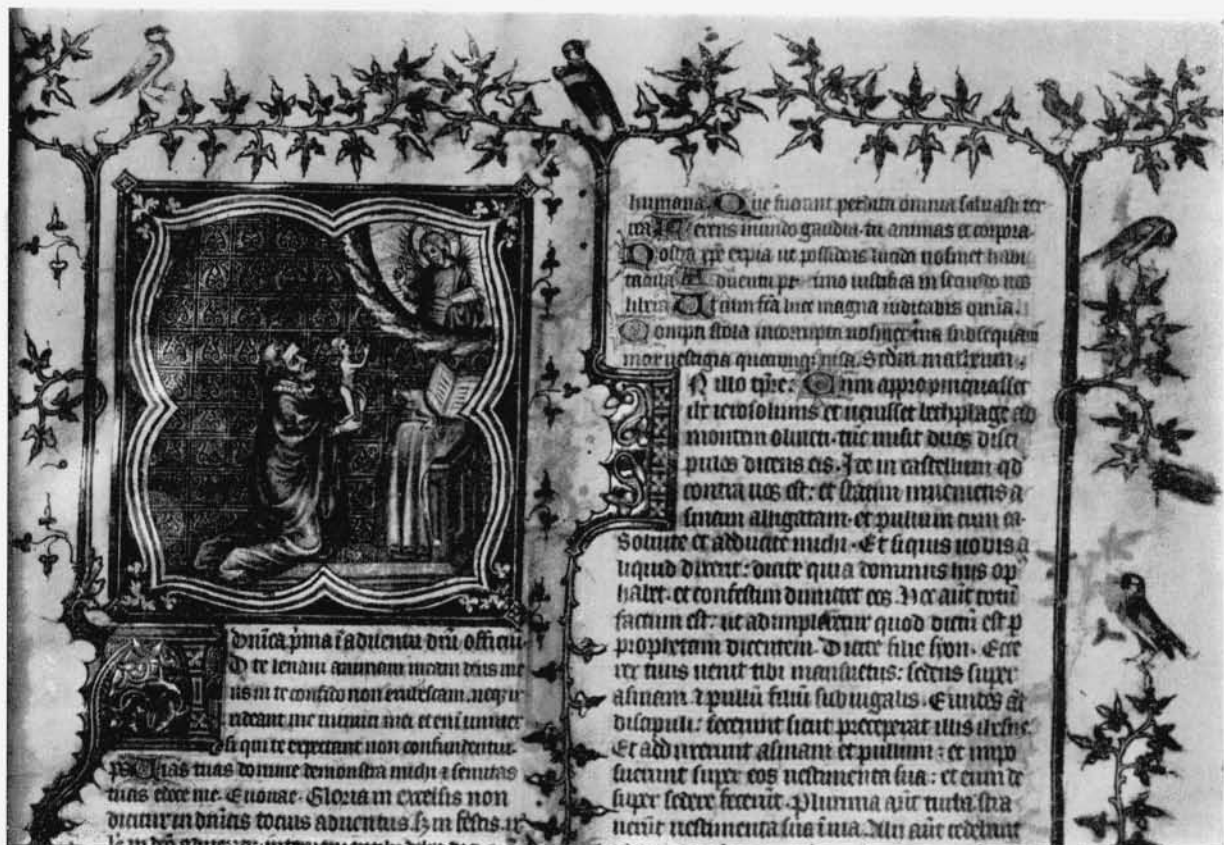 dnica pma i aduentu dni officiu
D te leuaui animam meam deus me
us in te confido non erubescam. neq; ir
rideant me inimici mei et eni uniuer
si qui te expectant non confundentur.
ps Uias tuas domine demonstra michi ⁊ semitas
tuas edoce me. Euouae. Gloria in excelsis non
dicitur in dnicis tocius aduentus. in festis
humana. Que fuerant perdita omnia saluasti ter
rea ferens mundo gaudia. tu animas et corpora.
Nostra xpe expia ut possideas lucida nosmet habi
tacula. Aduentu pimo iustifica in secundo nos
libera. Ut cum fca luce magna iudicabis omia.
Compti stola incorrupta nosmet tua subsequam
mox uestigia quocumq; uisa. Scdm matheum.
N illo tpre: Cum appropinquasset
ihc ierosolimis et uenisset bethphage ad
montem oliueti. tuc misit duos disci
pulos dicens eis. Ite in castellum qd
contra uos est: et statim inuenietis a
sinam alligatam. et pullum cum ea
Soluite et adducite michi. Et siquis uobis a
liquid dixerit: dicite quia dominus hiis op
habet. et confestim dimittet eos. Hoc aut totu
factum est: ut adimpleretur quod dictu est p
prophetam dicentem. Dicite filie syon. Ecce
rex tuus uenit tibi mansuetus: sedens super
asinam ⁊ pullu filiu subiugalis. Euntes at
discipuli: fecerunt sicut preceperat illis ihesus
Et adduxerunt asinam et pullum: et impo
suerunt super eos uestimenta sua: et eum de
super sedere fecerut. Plurima aut turba stra
uerut uestimenta sua i uia. Alii aut cedebant